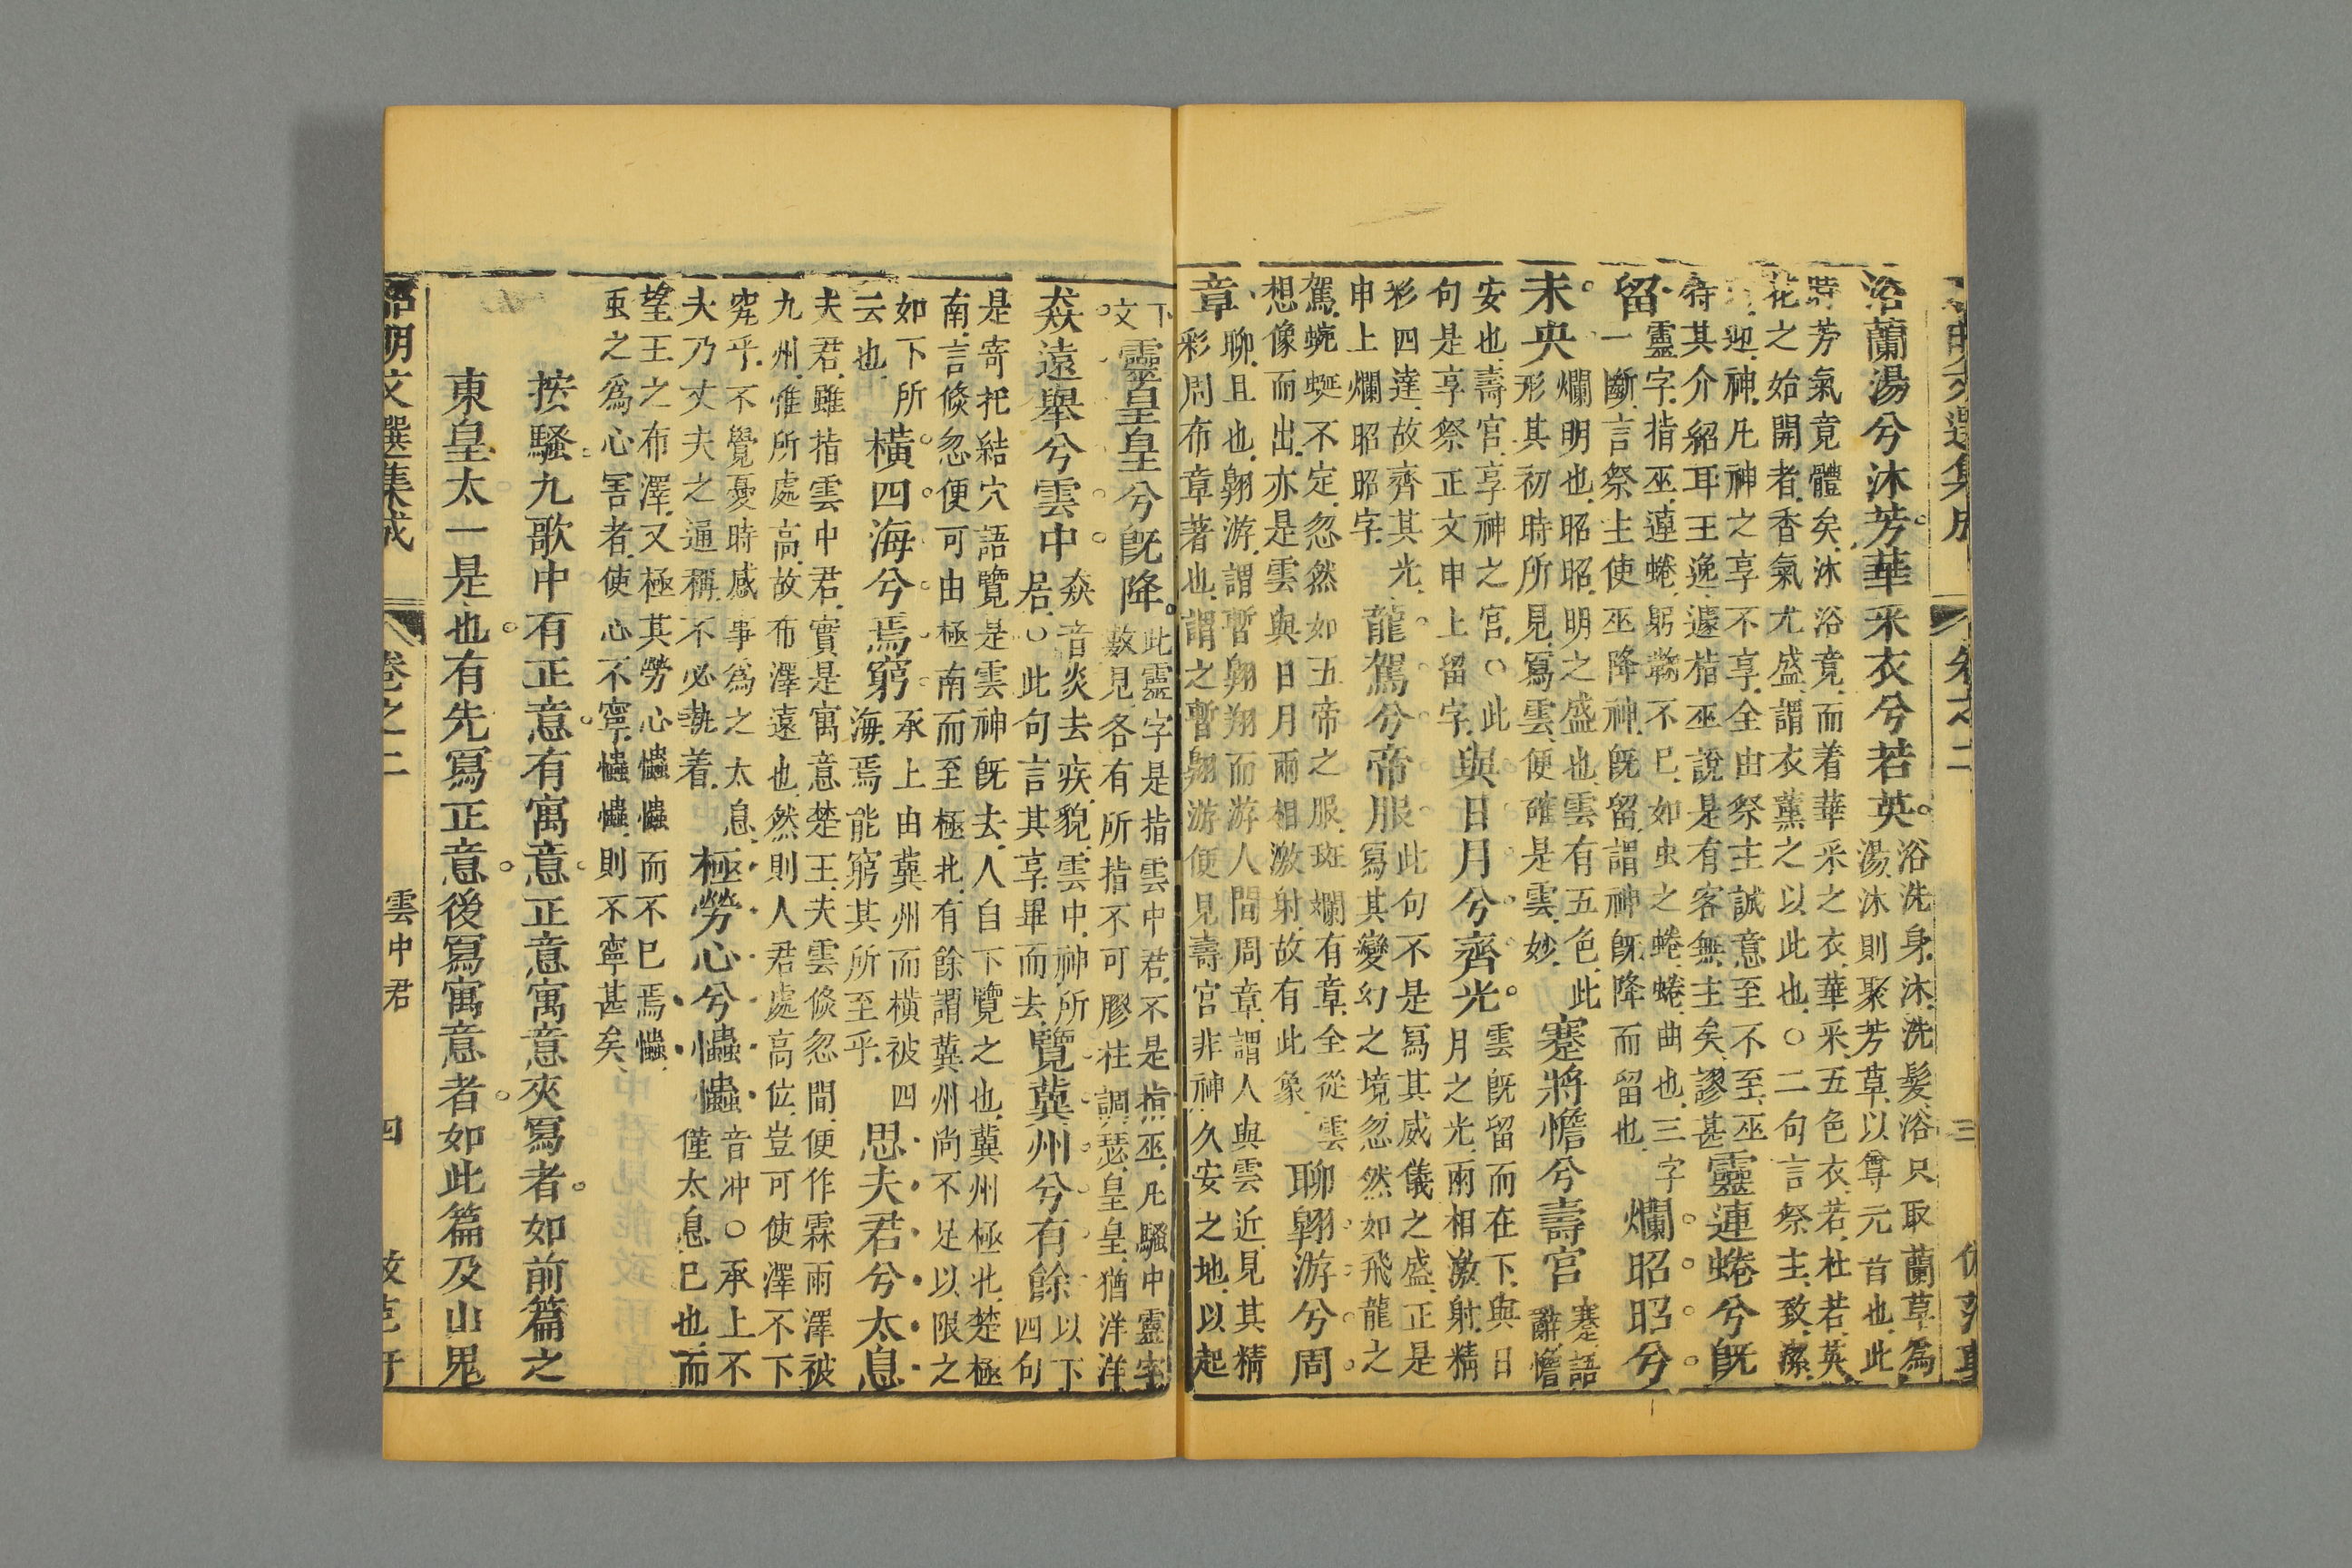 浴蘭湯兮沐芳華采衣兮若英。浴洗身沐洗髮浴只取蘭草為湯沐則聚芳草以尊元首也此
時芳氣竟體矣沐浴竟而着華采之衣華采五色衣若杜若英花之始開者香氣尤盛謂衣薰之以此也○二句言祭主致潔
迎神凡神之享不享全由祭主誠意至不至巫特其介紹耳王逸遽指巫說是有客無主矣謬甚靈連蜷兮既
留靈字指巫連蜷躬鞠不已如虫之蜷蜷曲也三字一斷言祭主使巫降神既留謂神既降而留也爛昭昭兮
未央爛明也昭昭明之盛也雲有五色此形其初時所見寫雲便確是雲妙蹇將憺兮壽宮蹇語辭憺
安也壽宮享神之宮○此句是享祭正文申上留字與日月兮齊光。雲既留而在下與日月之光兩相激射精
彩四達故齊其光申上爛昭昭字龍駕兮帝服此句不是寫其威儀之盛正是寫其變幻之境忽然如飛龍之
駕蜿蜒不定忽然如五帝之服斑斕有章全從雲想像而出亦是雲與日月兩相激射故有此象聊翱游兮周
章聊且也翱游謂暫翱翔而游人間周章謂人與雲近見其精彩周布章著也謂之暫翱游便見壽宮非神久安之地以起
下文靈皇皇兮既降。此靈字是指雲中君不是指巫凡騷中靈字數見各有所指不可膠柱調瑟皇皇猶洋洋
猋遠舉兮雲中猋音炎去疾貌雲中神所居○此句言其享畢而去覽冀州兮有餘以下四句
是寄托結穴語覽是雲神既去人自下覽之也冀州極北楚極南言倏忽便可由極南而至極北有餘謂冀州尚不足以限之
如下所云也橫四海兮焉窮承上由冀州而橫被四海焉能窮其所至乎思夫君兮太息
夫君雖指雲中君實是寓意楚王夫雲倏忽間便作霖雨澤被九州惟所處高故布澤遠也然則人君處高位豈可使澤不下
究乎不覺憂時感事為之太息夫乃丈夫之通稱不必執着極勞心兮𢥞𢥞音冲○承上不僅太息已也而
望王之布澤又極其勞心𢥞𢥞而不已焉𢥞虫之為心害者使心不寧𢥞𢥞則不寧甚矣
按騷九歌中有正意有寓意正意寓意夾寫者。如前篇之
東皇太一是也有先寫正意後寫寓意者如此篇及山鬼
昭明文選集成 卷之二 雲中君 四